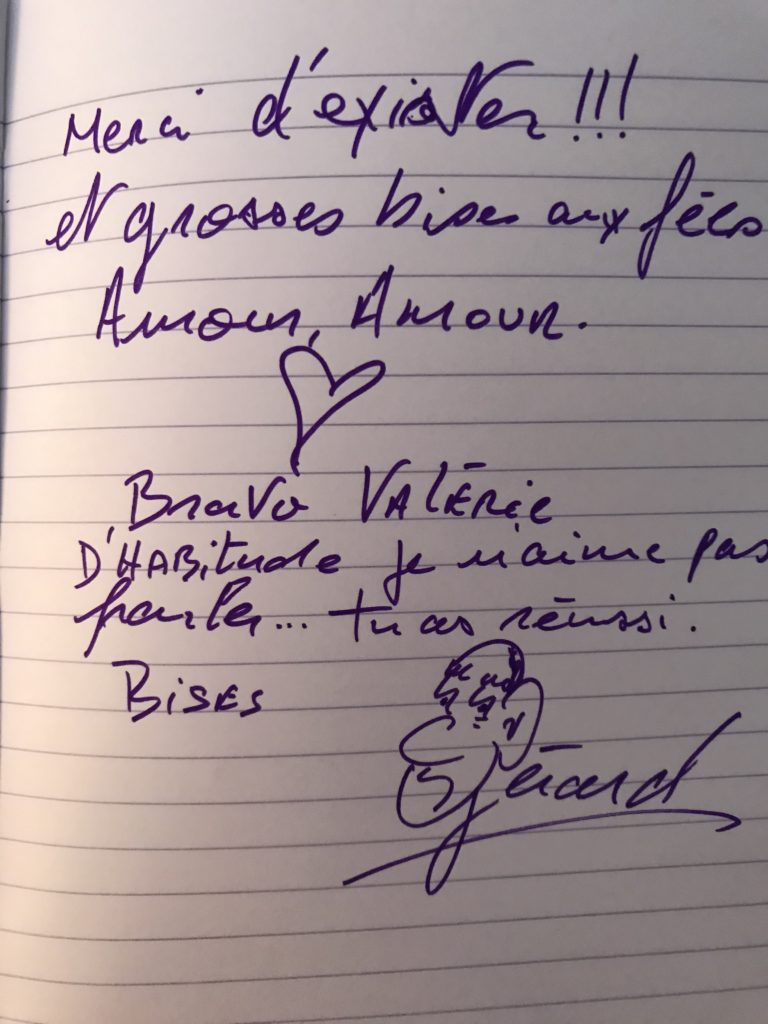 Merci d'exister !!!
et grosses bises aux fées
Amour, Amour.
Bravo VALÉRie
D'HABitude je n'aime pas
parler... tu as réussi.
BisES
Gérard